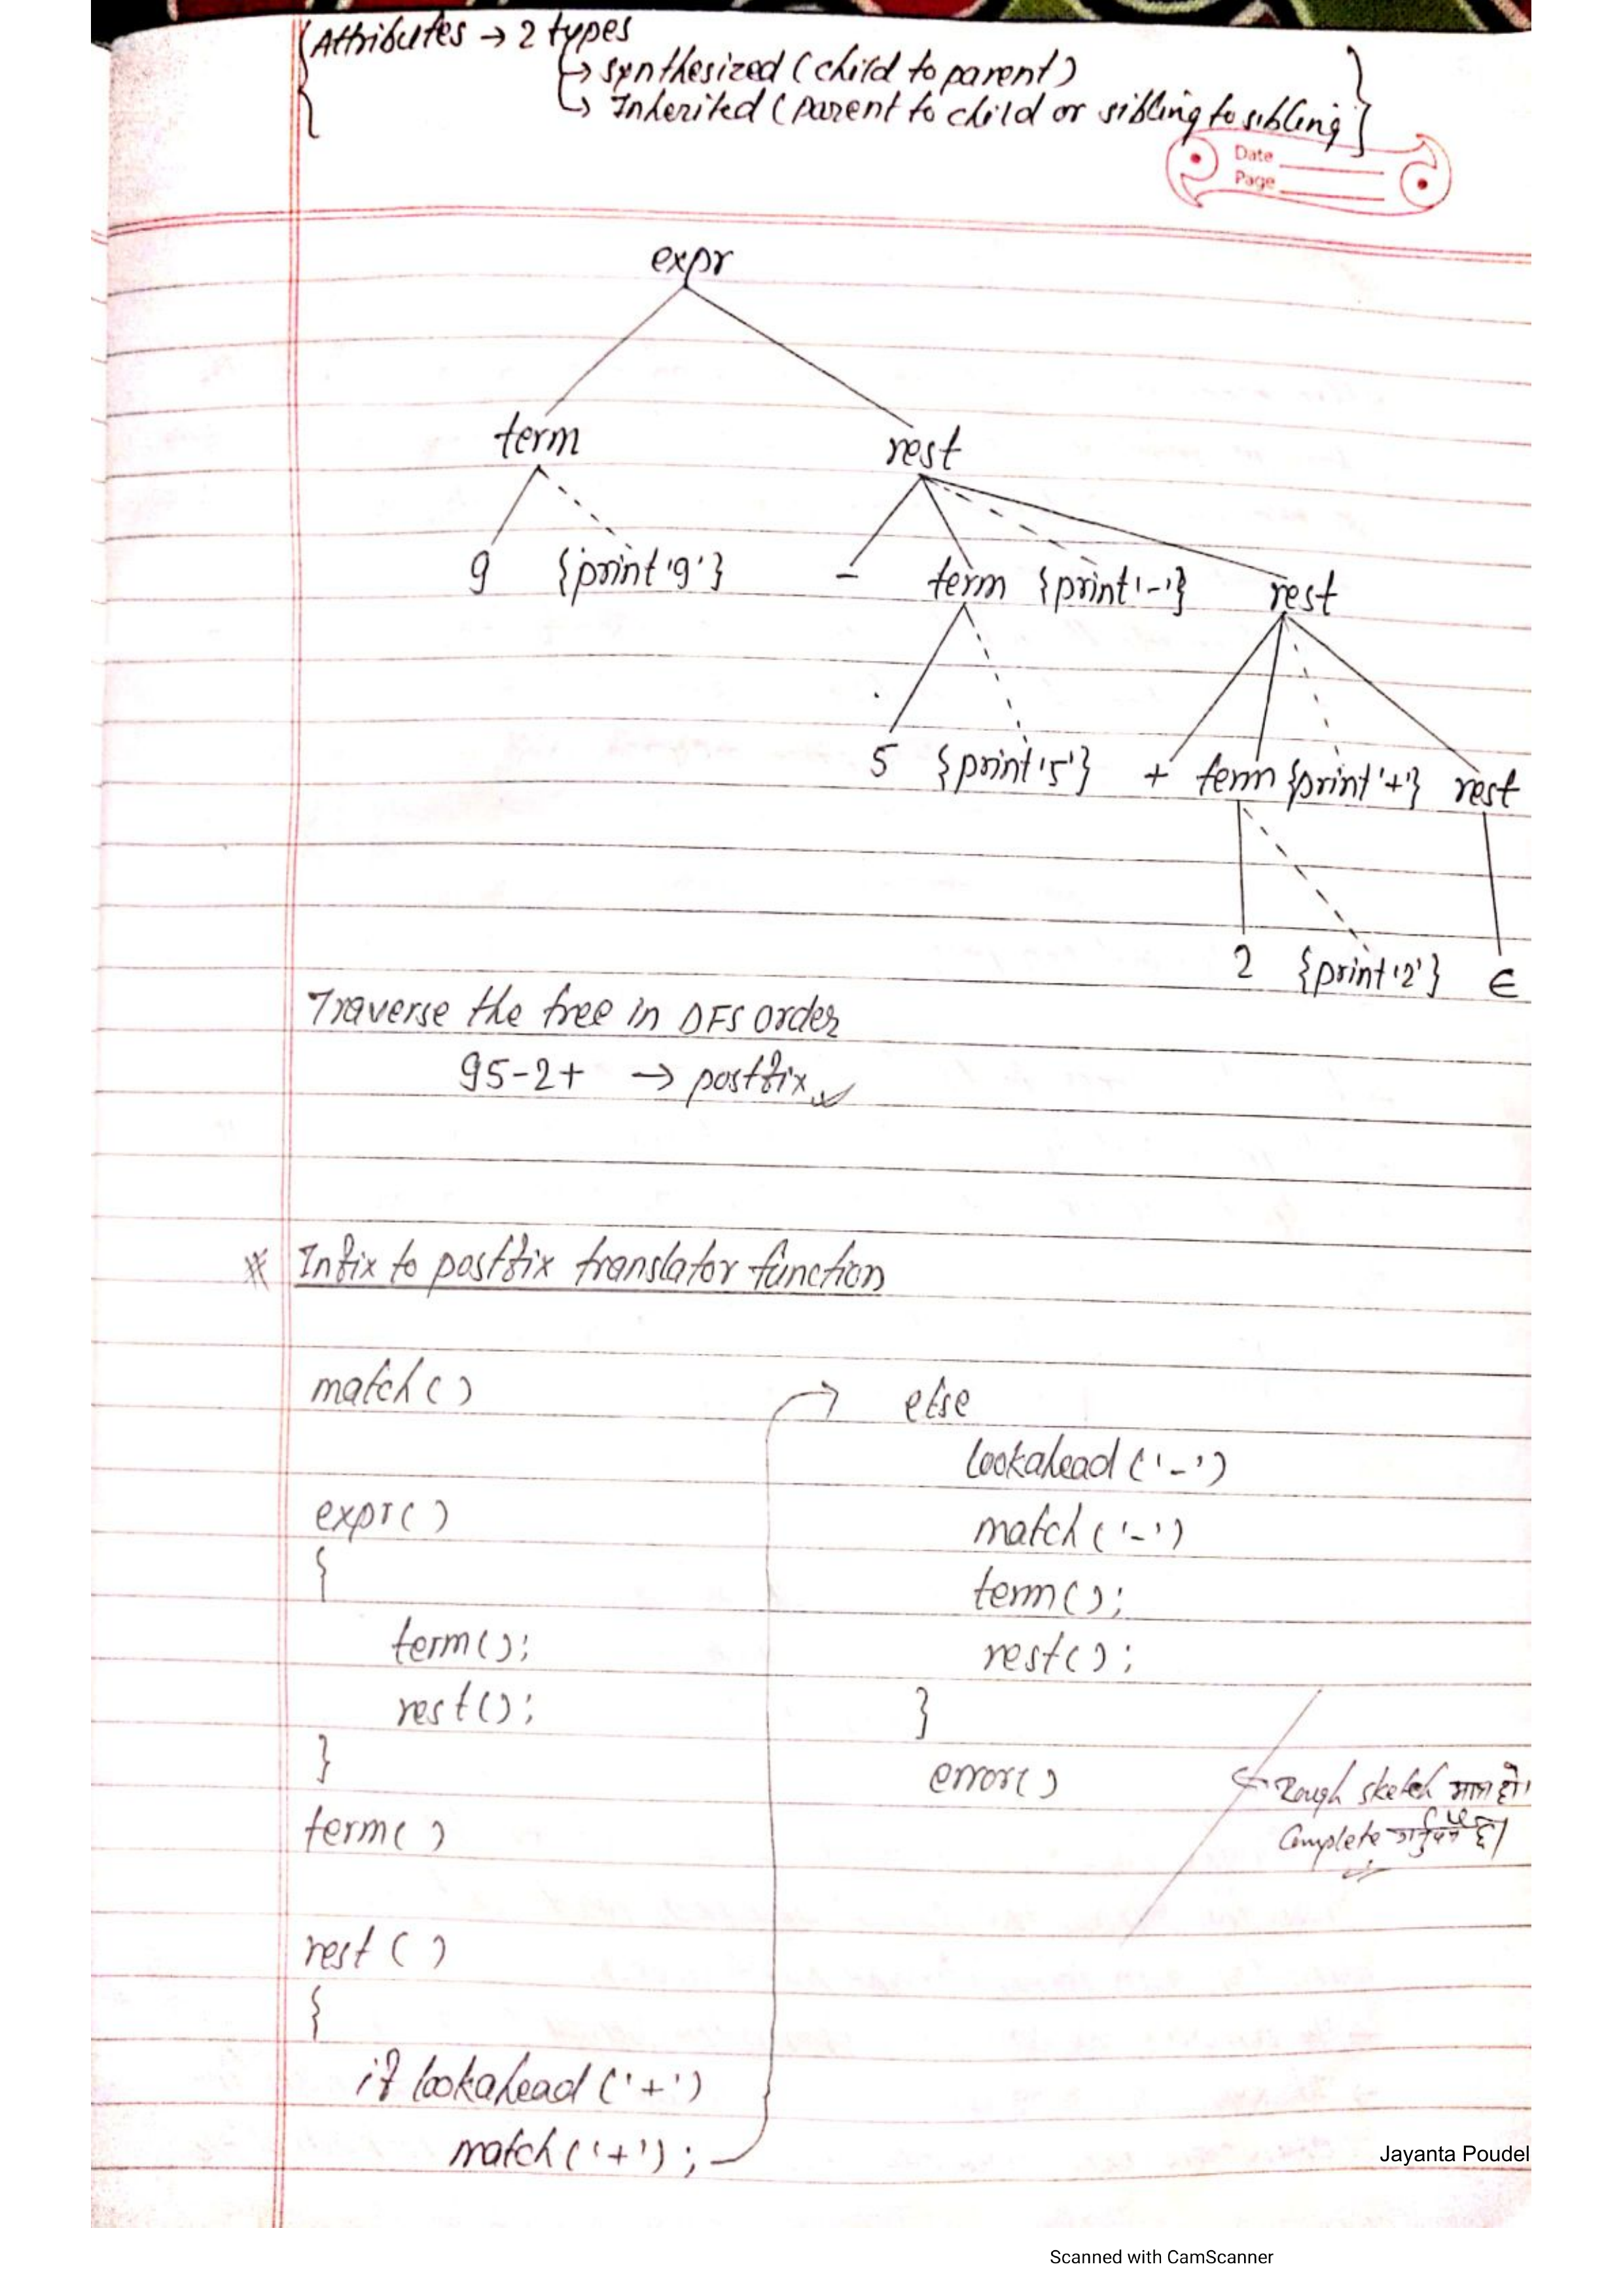 Attributes → 2 types
↳ synthesized (child to parent)
↳ Inherited (parent to child or sibling to sibling}
Date
Page
expr
term rest
9 {print '9'} - term {print '-'} rest
5 {print '5'} + term {print '+'} rest
2 {print '2'} ϵ
Traverse the tree in DFS order
95-2+ → postfix
# Infix to postfix translator function
match()
expr()
{
term();
rest();
}
term()
rest()
{
if lookahead('+')
match('+');
else
lookahead('-')
match('-')
term();
rest();
}
error()
← Rough sketch मात्र हो।
Complete
Jayanta Poudel
Scanned with CamScanner